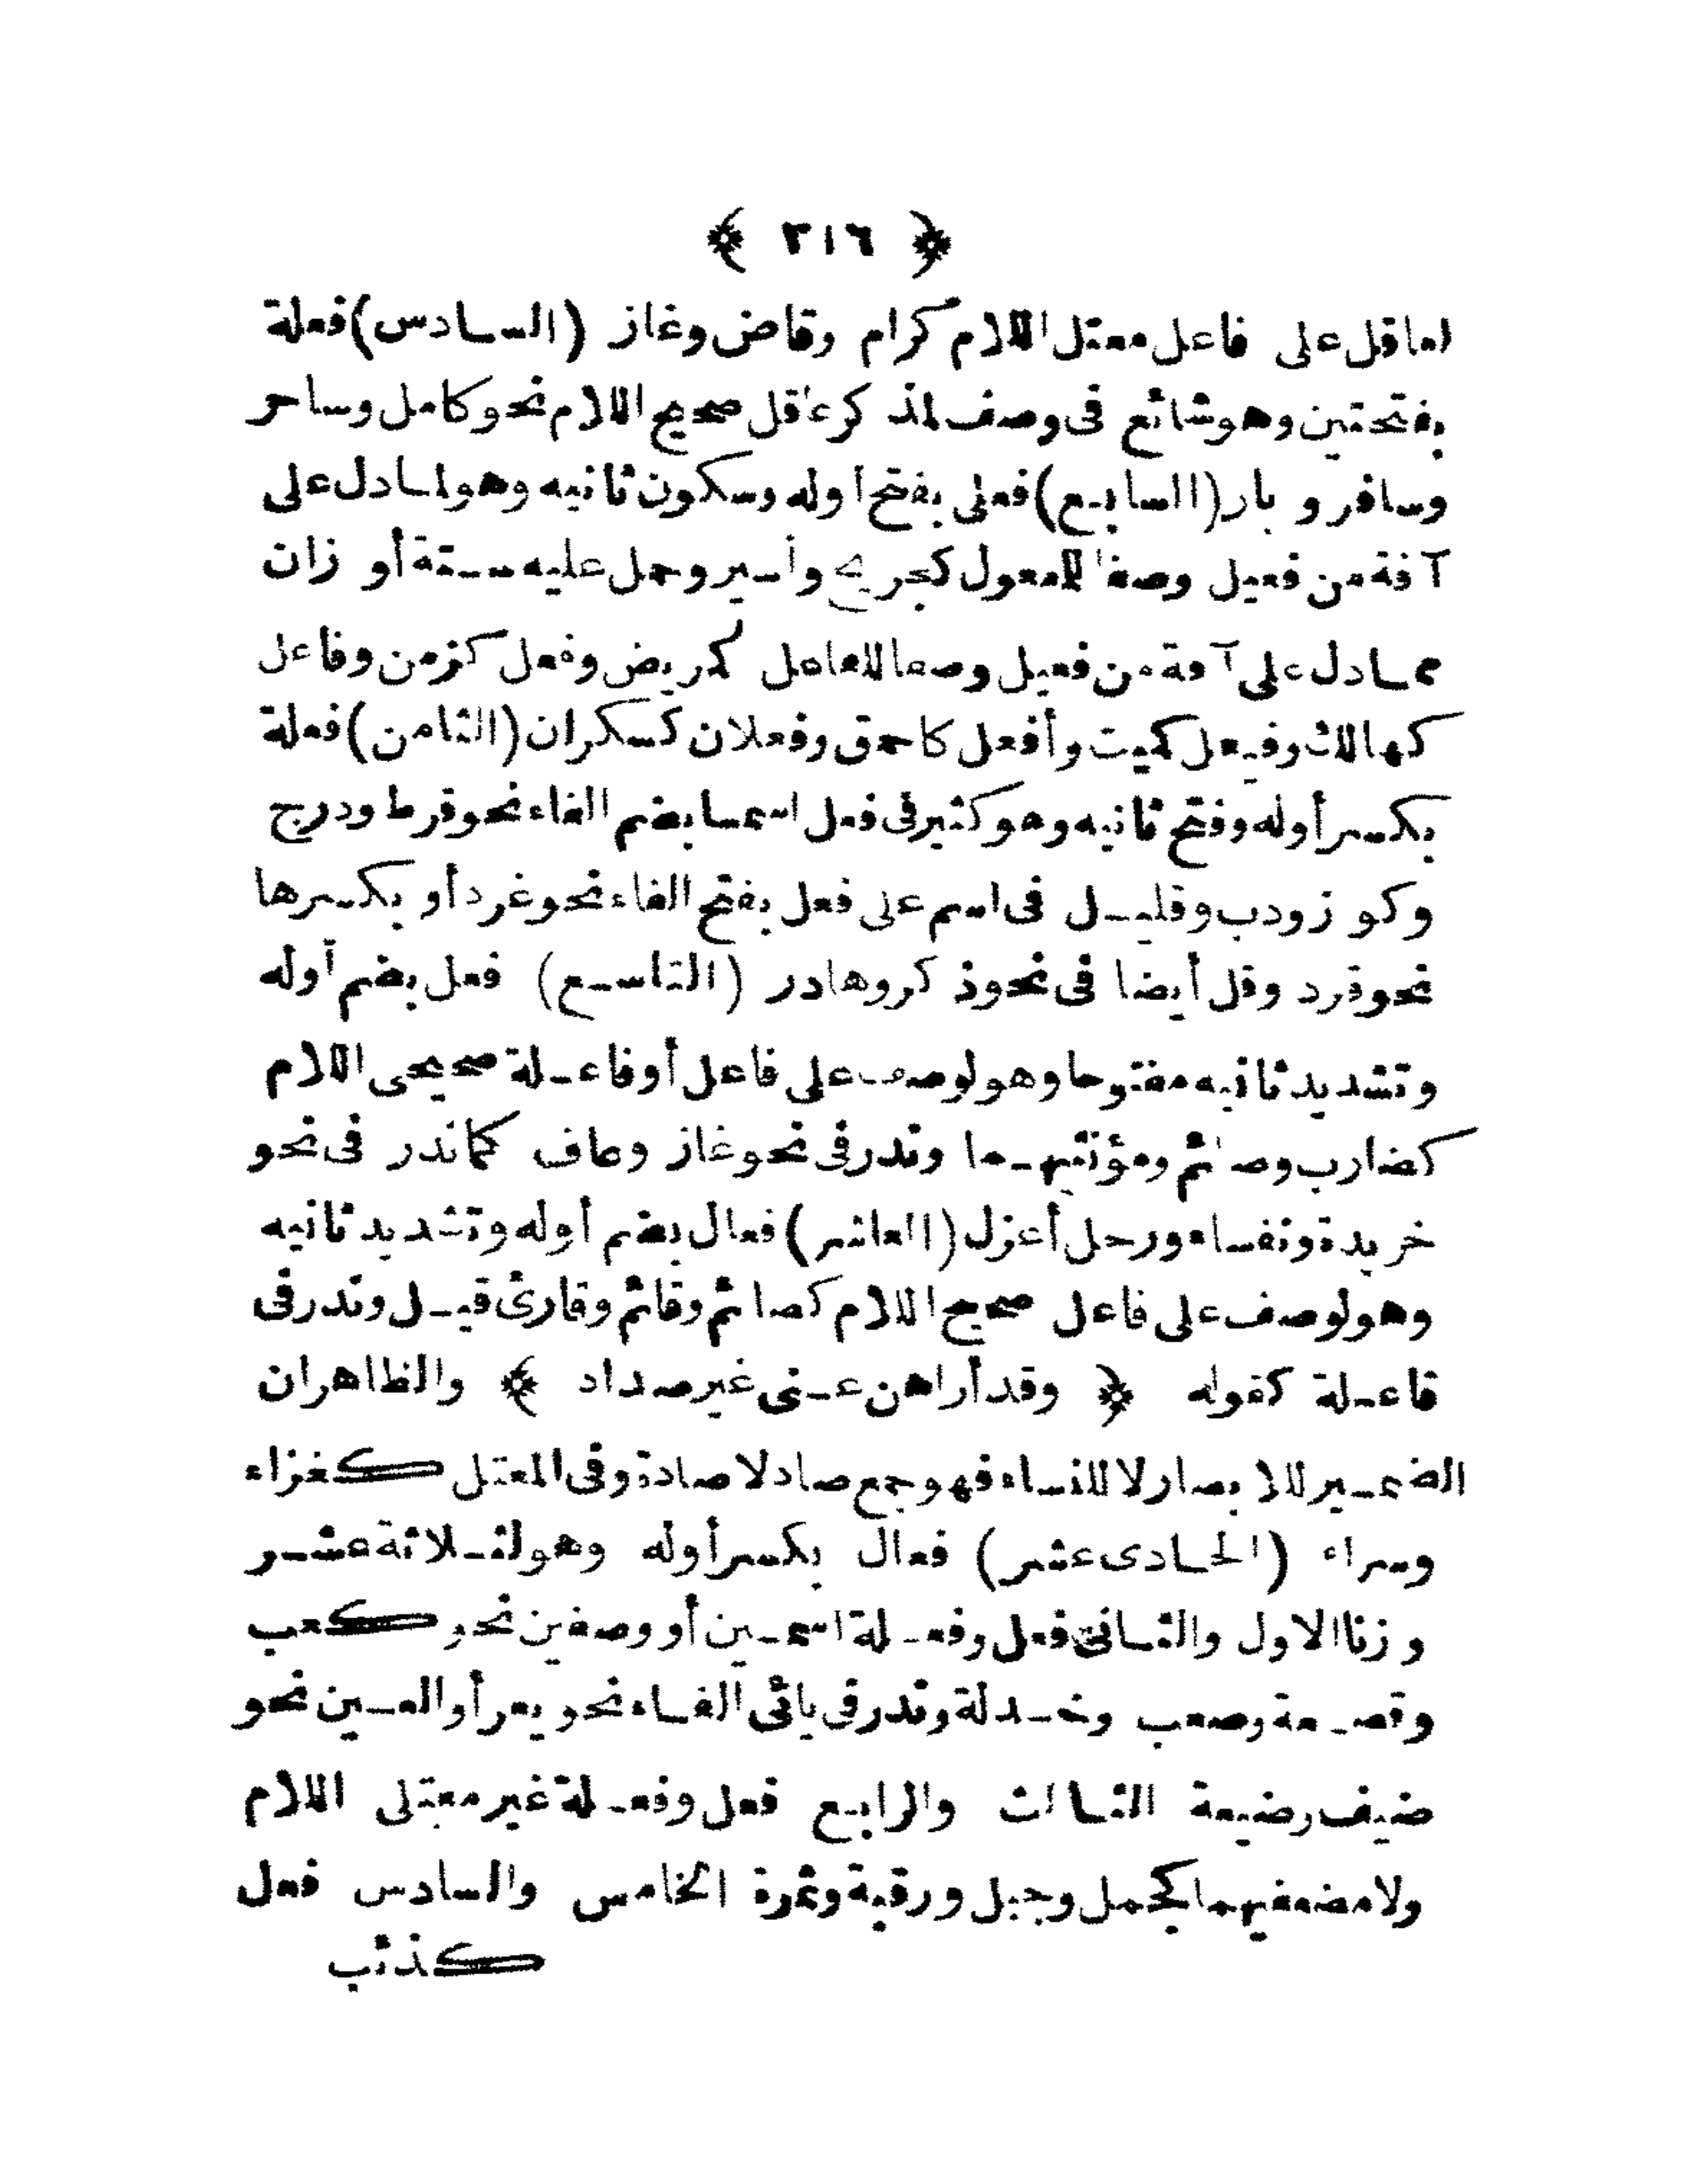 ﴿ ٣١٦ ﴾
لعاقل على فاعل معتل اللام كرام وقاض وغاز (السادس) فعلة
بفتحتين وهو شائع فى وصف لمذكر عاقل صحيح اللام نحو كامل وساحر
وسافر وبار (السابع) فعلى بفتح أوله وسكون ثانيه وهو لمادل على
آفة من فعيل وصفا للمفعول كجريح وأسير وحمل عليه ستة أوزان
ممادل على آفة من فعيل وصفا للفاعل كمريض وفعل كزمن وفاعل
كهالك وفيعل كميت وأفعل كاحمق وفعلان كسكران (الثامن) فعلة
بكسر أوله وفتح ثانيه وهو كثير فى فعل اسما بضم الفاء نحو قرط ودرج
وكوز ودب وقليل فى اسم على فعل بفتح الفاء نحو غرد أو بكسرها
نحو قرد وقل أيضا فى نحو ذكر وهادر (التاسع) فعل بضم أوله
وتشديد ثانيه مفتوحا وهو لوصف على فاعل أو فاعلة صحيحى اللام
كضارب وصائم ومؤنثيهما وندر فى نحو غاز وعاف كما ندر فى نحو
خريدة ونفساء ورجل أعزل (العاشر) فعال بضم أوله وتشديد ثانيه
وهو لوصف على فاعل صحيح اللام كصائم وقائم وقارئ قيل وندر فى
فاعلة كقوله ﴿ وقد أراهن عنى غير صداد ﴾ والظاهر ان
الضمير للابصار لا للنساء فهو جمع صاد لا صادة وفى المعتل كغزاء
وسراء (الحادى عشر) فعال بكسر أوله وهو لثلاثة عشر
وزنا الاول والثانى فعل وفعلة اسمين أو وصفين نحو كعب
وقصعة وصعب وخدلة وندر فى يائى الفاء نحو يعر أو العين نحو
ضيف وضيعة الثالث والرابع فعل وفعلة غير معتلى اللام
ولا مضعفيهما كجمل وجبل ورقبة وثمرة الخامس والسادس فعل
كذئب